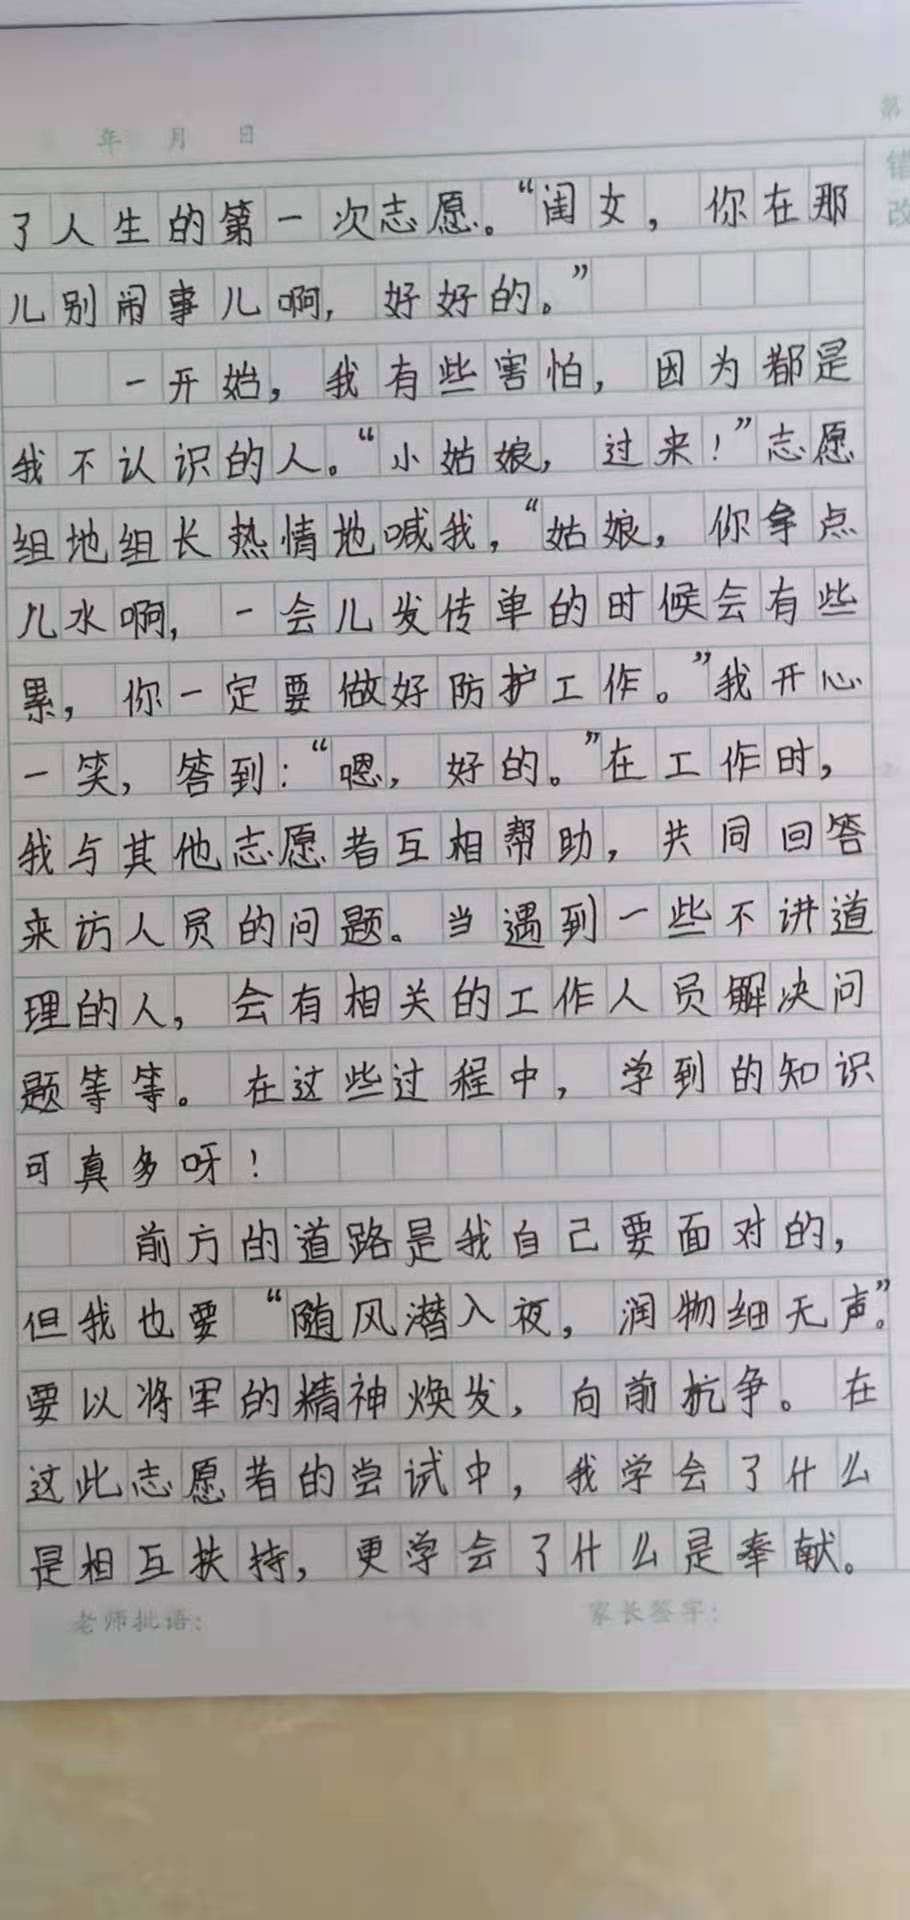 年 月 日
第
错
改
了人生的第一次志愿。“闺女，你在那
儿别闹事儿啊，好好的。”
一开始，我有些害怕，因为都是
我不认识的人。“小姑娘，过来！”志愿
组地组长热情地喊我，“姑娘，你拿点
儿水啊，一会儿发传单的时候会有些
累，你一定要做好防护工作。”我开心
一笑，答到：“嗯，好的。”在工作时，
我与其他志愿者互相帮助，共同回答
来访人员的问题。当遇到一些不讲道
理的人，会有相关的工作人员解决问
题等等。在这些过程中，学到的知识
可真多呀！
前方的道路是我自己要面对的，
但我也要“随风潜入夜，润物细无声”。
要以将军的精神焕发，向前抗争。在
这此志愿者的尝试中，我学会了什么
是相互扶持，更学会了什么是奉献。
老师批语： 家长签字：